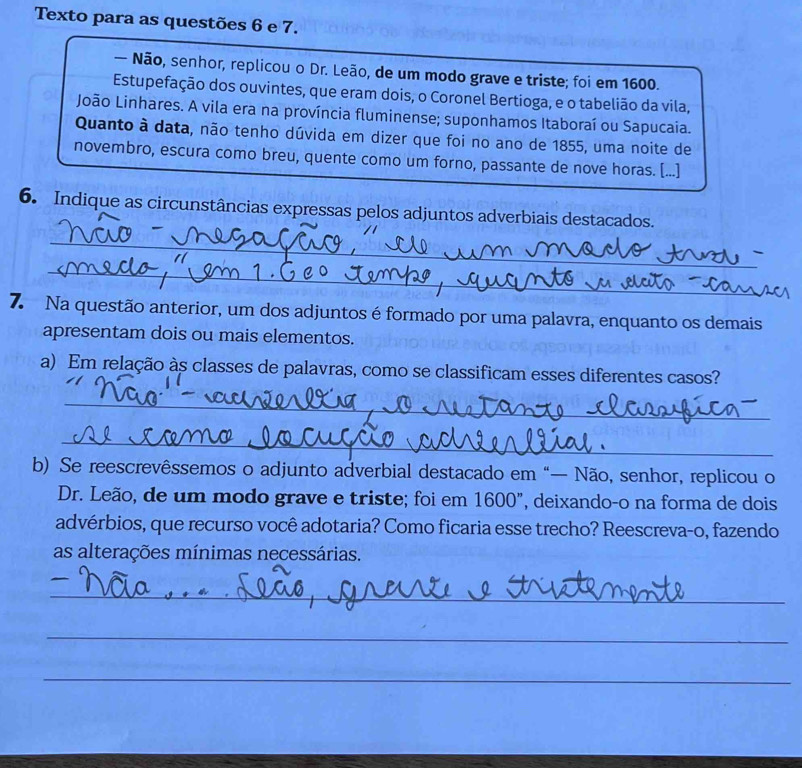 Texto para as questões 6 e 7.
— Não, senhor, replicou o Dr. Leão, de um modo grave e triste; foi em 1600.
Estupefação dos ouvintes, que eram dois, o Coronel Bertioga, e o tabelião da vila,
João Linhares. A vila era na província fluminense; suponhamos Itaboraí ou Sapucaia.
Quanto à data, não tenho dúvida em dizer que foi no ano de 1855, uma noite de
novembro, escura como breu, quente como um forno, passante de nove horas. [...]
6. Indique as circunstâncias expressas pelos adjuntos adverbiais destacados.
Não - negação, "de um modo
em 1.600 tempo, quanto a data - causa
7. Na questão anterior, um dos adjuntos é formado por uma palavra, enquanto os demais
apresentam dois ou mais elementos.
a) Em relação às classes de palavras, como se classificam esses diferentes casos?
"Não" - advérbio, o restante classifica-
se como locução adverbial.
b) Se reescrevêssemos o adjunto adverbial destacado em "— Não, senhor, replicou o
Dr. Leão, de um modo grave e triste; foi em 1600", deixando-o na forma de dois
advérbios, que recurso você adotaria? Como ficaria esse trecho? Reescreva-o, fazendo
as alterações mínimas necessárias.
- Não .... Leão, grave e tristemente